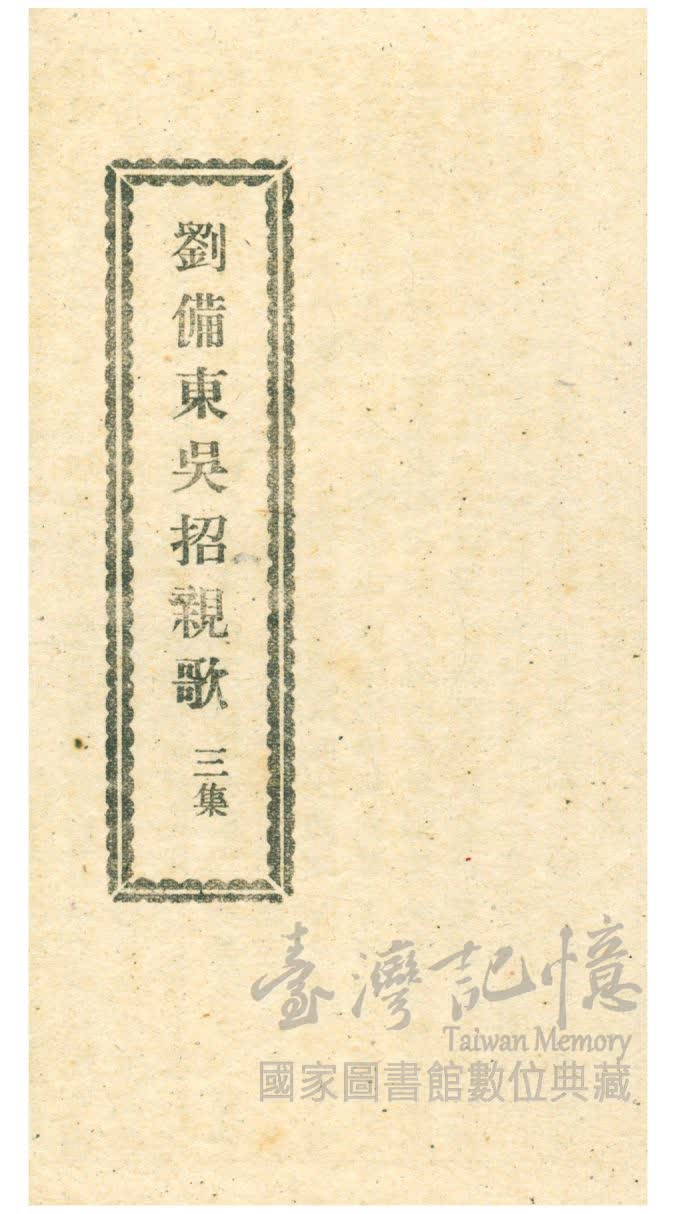 劉備東吳招親歌 三集
臺灣記憶
Taiwan Memory
國家圖書館數位典藏